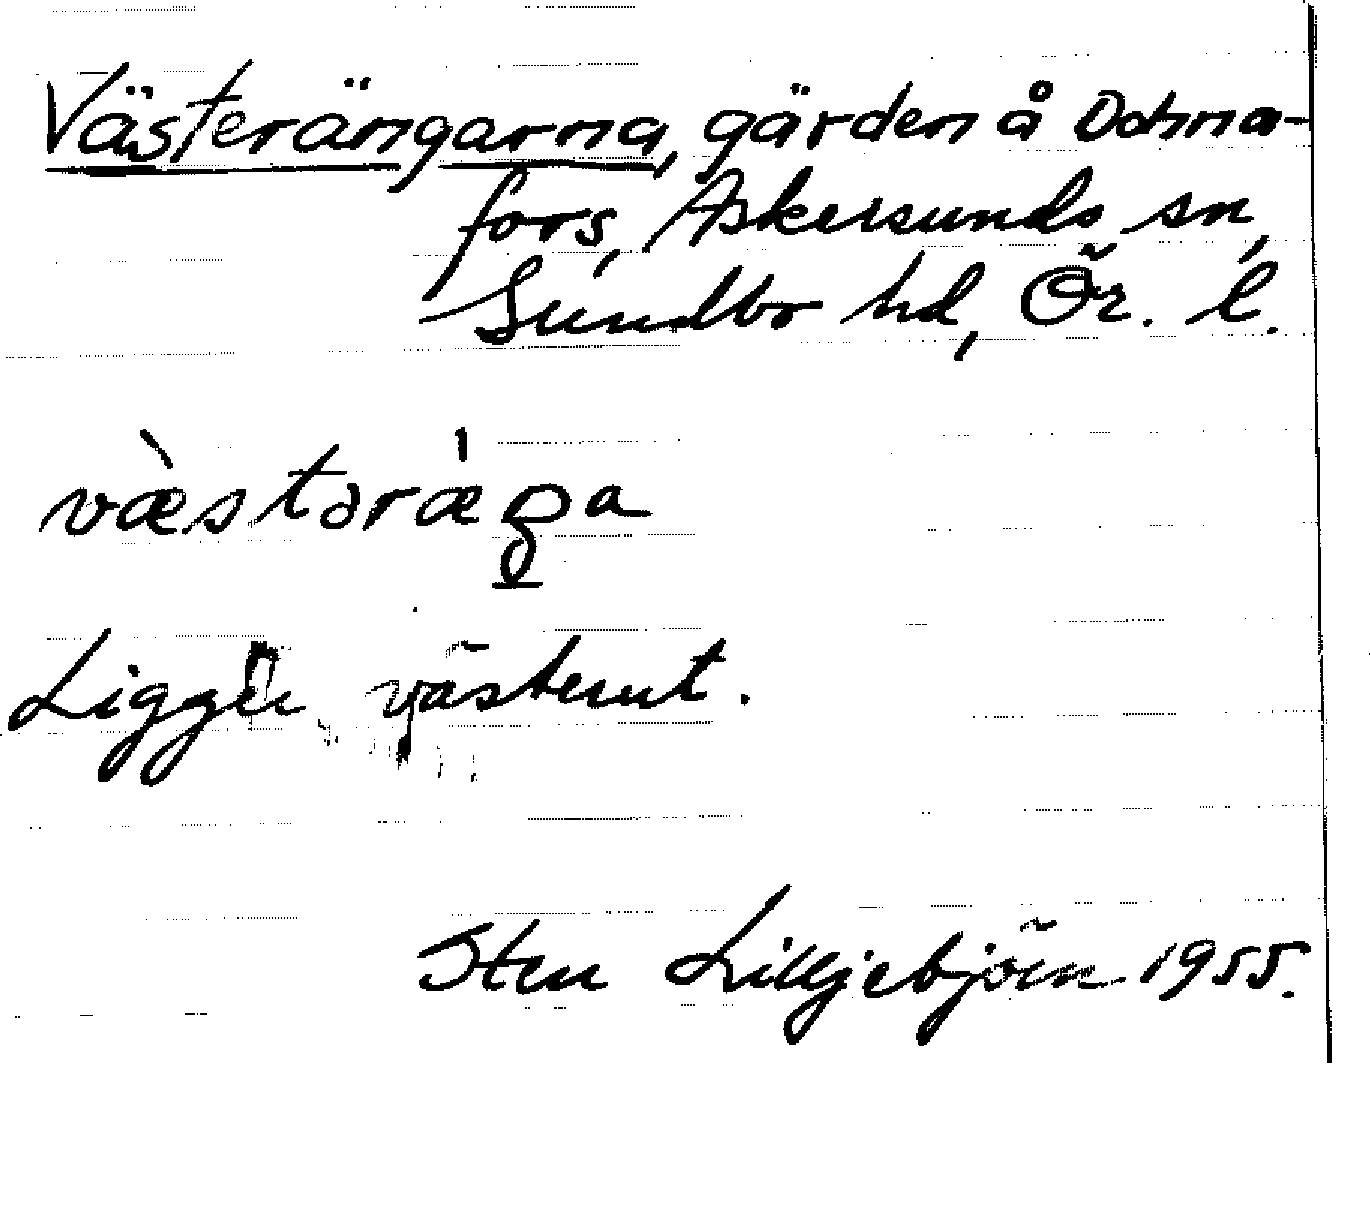 Västerängarna, gärden å Dohna-
fors, Askersunds sn,
Sundbo hd, Ör. l.
væ̀stərǽŋa
Ligger västerut.
Sten Lilljebjörn 1955.